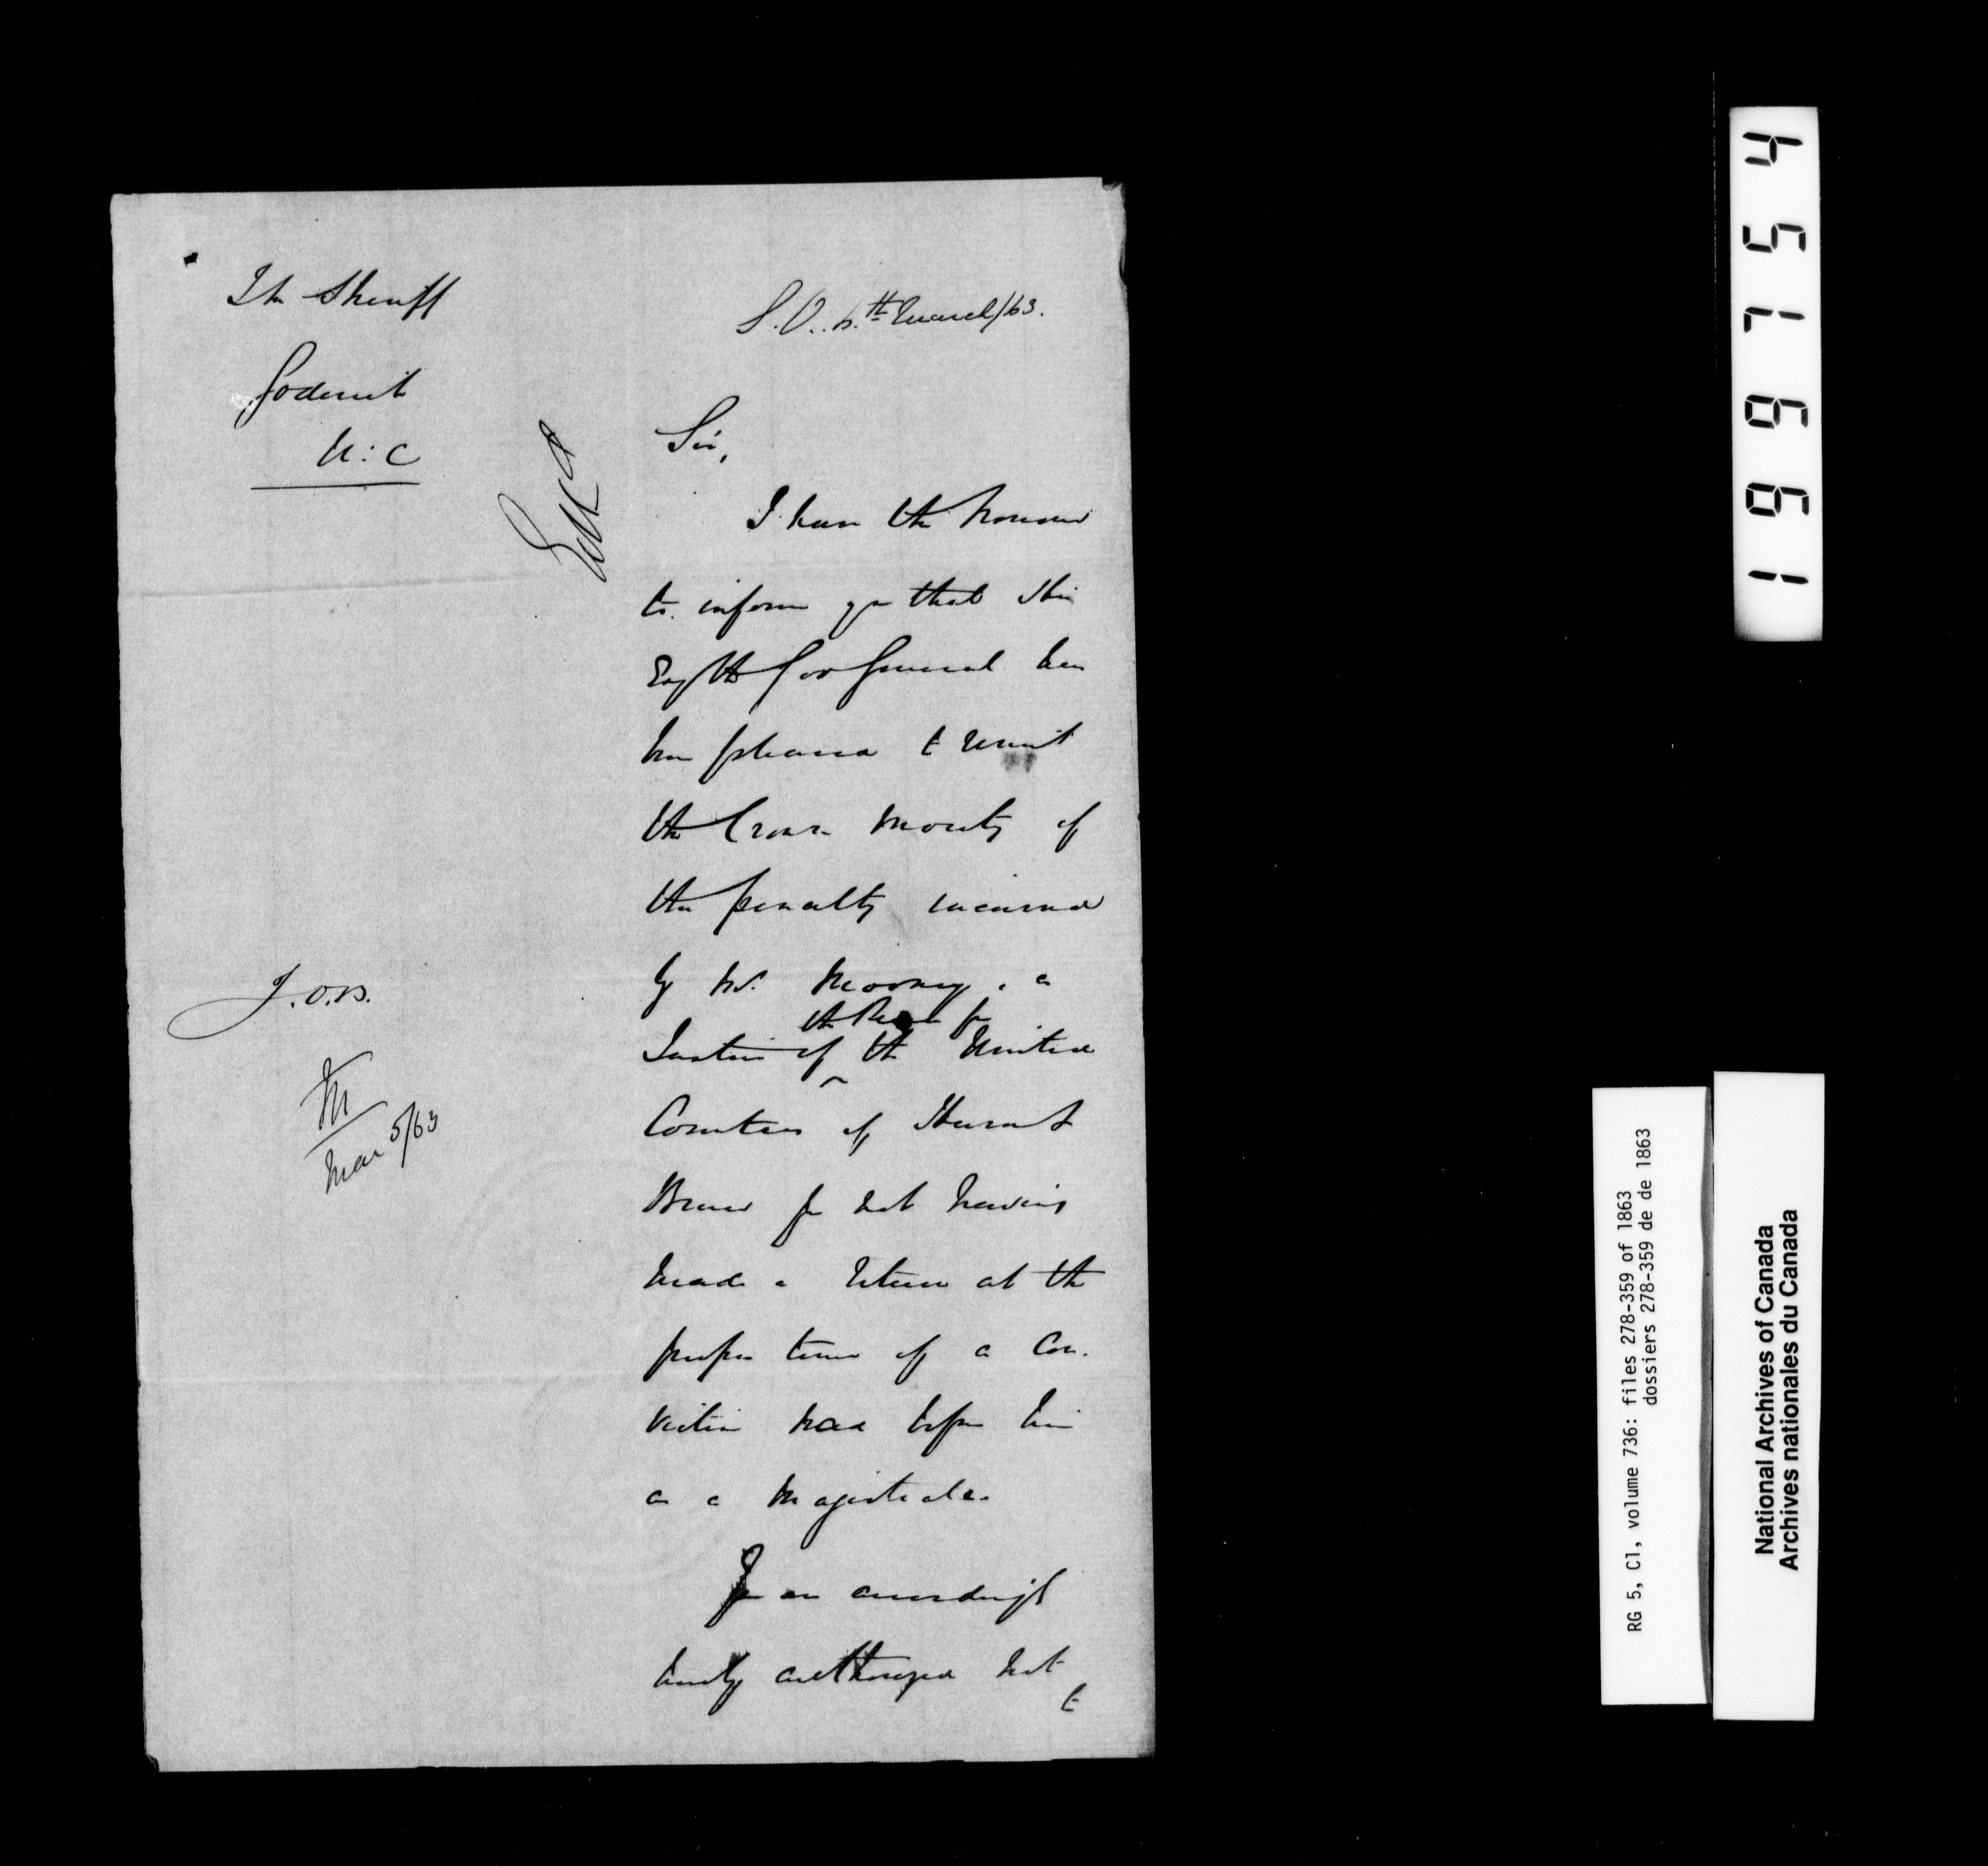 The Sheriff
Goderich
U: C
S.O. 6.th March/63.
Sir,
I have the honour
to inform you that His
Exy the Gov General has
been pleased to remit
the Crown moiety of
the penalty incurred
by Mr. Mooney, a
the Peace for
Justice of the United
Counties of Huron &
Bruce for not having
made a return at the
proper time of a Con.
viction had before him
as a Magistrate.
You are accordingly
hereby authorized not
to
J.O.B.
M
Mar 5/63
199754
RG 5, C1, volume 736: files 278-359 of 1863
dossiers 278-359 de de 1863
National Archives of Canada
Archives nationales du Canada